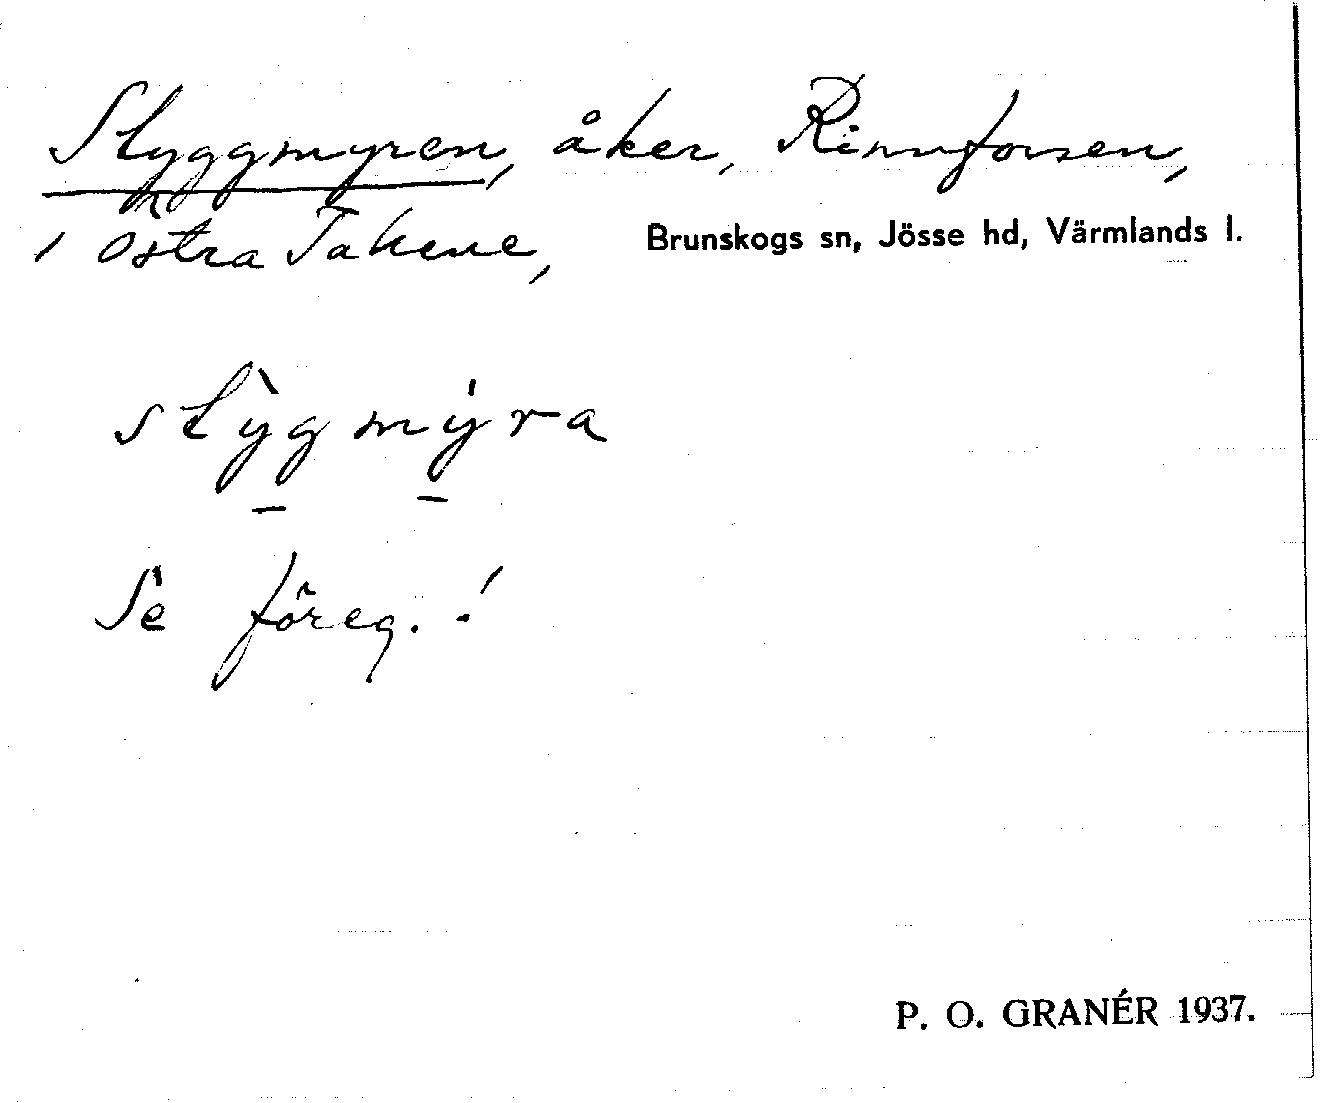 Styggmyren, åker, Rinnforsen,
i Östra Takene, Brunskogs sn, Jösse hd, Värmlands l.
stỳgmýra
Se föreg.!
P. O. GRANÉR 1937.